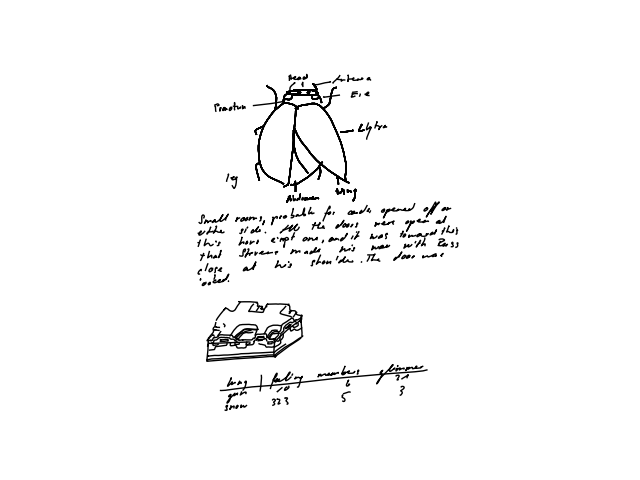 Head
Antenna
Eye
Elytra
leg
Abdomen
Wing
Small rooms, probable for cards, opened off on
either side. All the doors were open at
this hour except one, and it was toward this
that Stevens made his way with Russ
close at his shoulder. The door was
locked.
feeling members glimmer
gun 6
snow 323 5 3